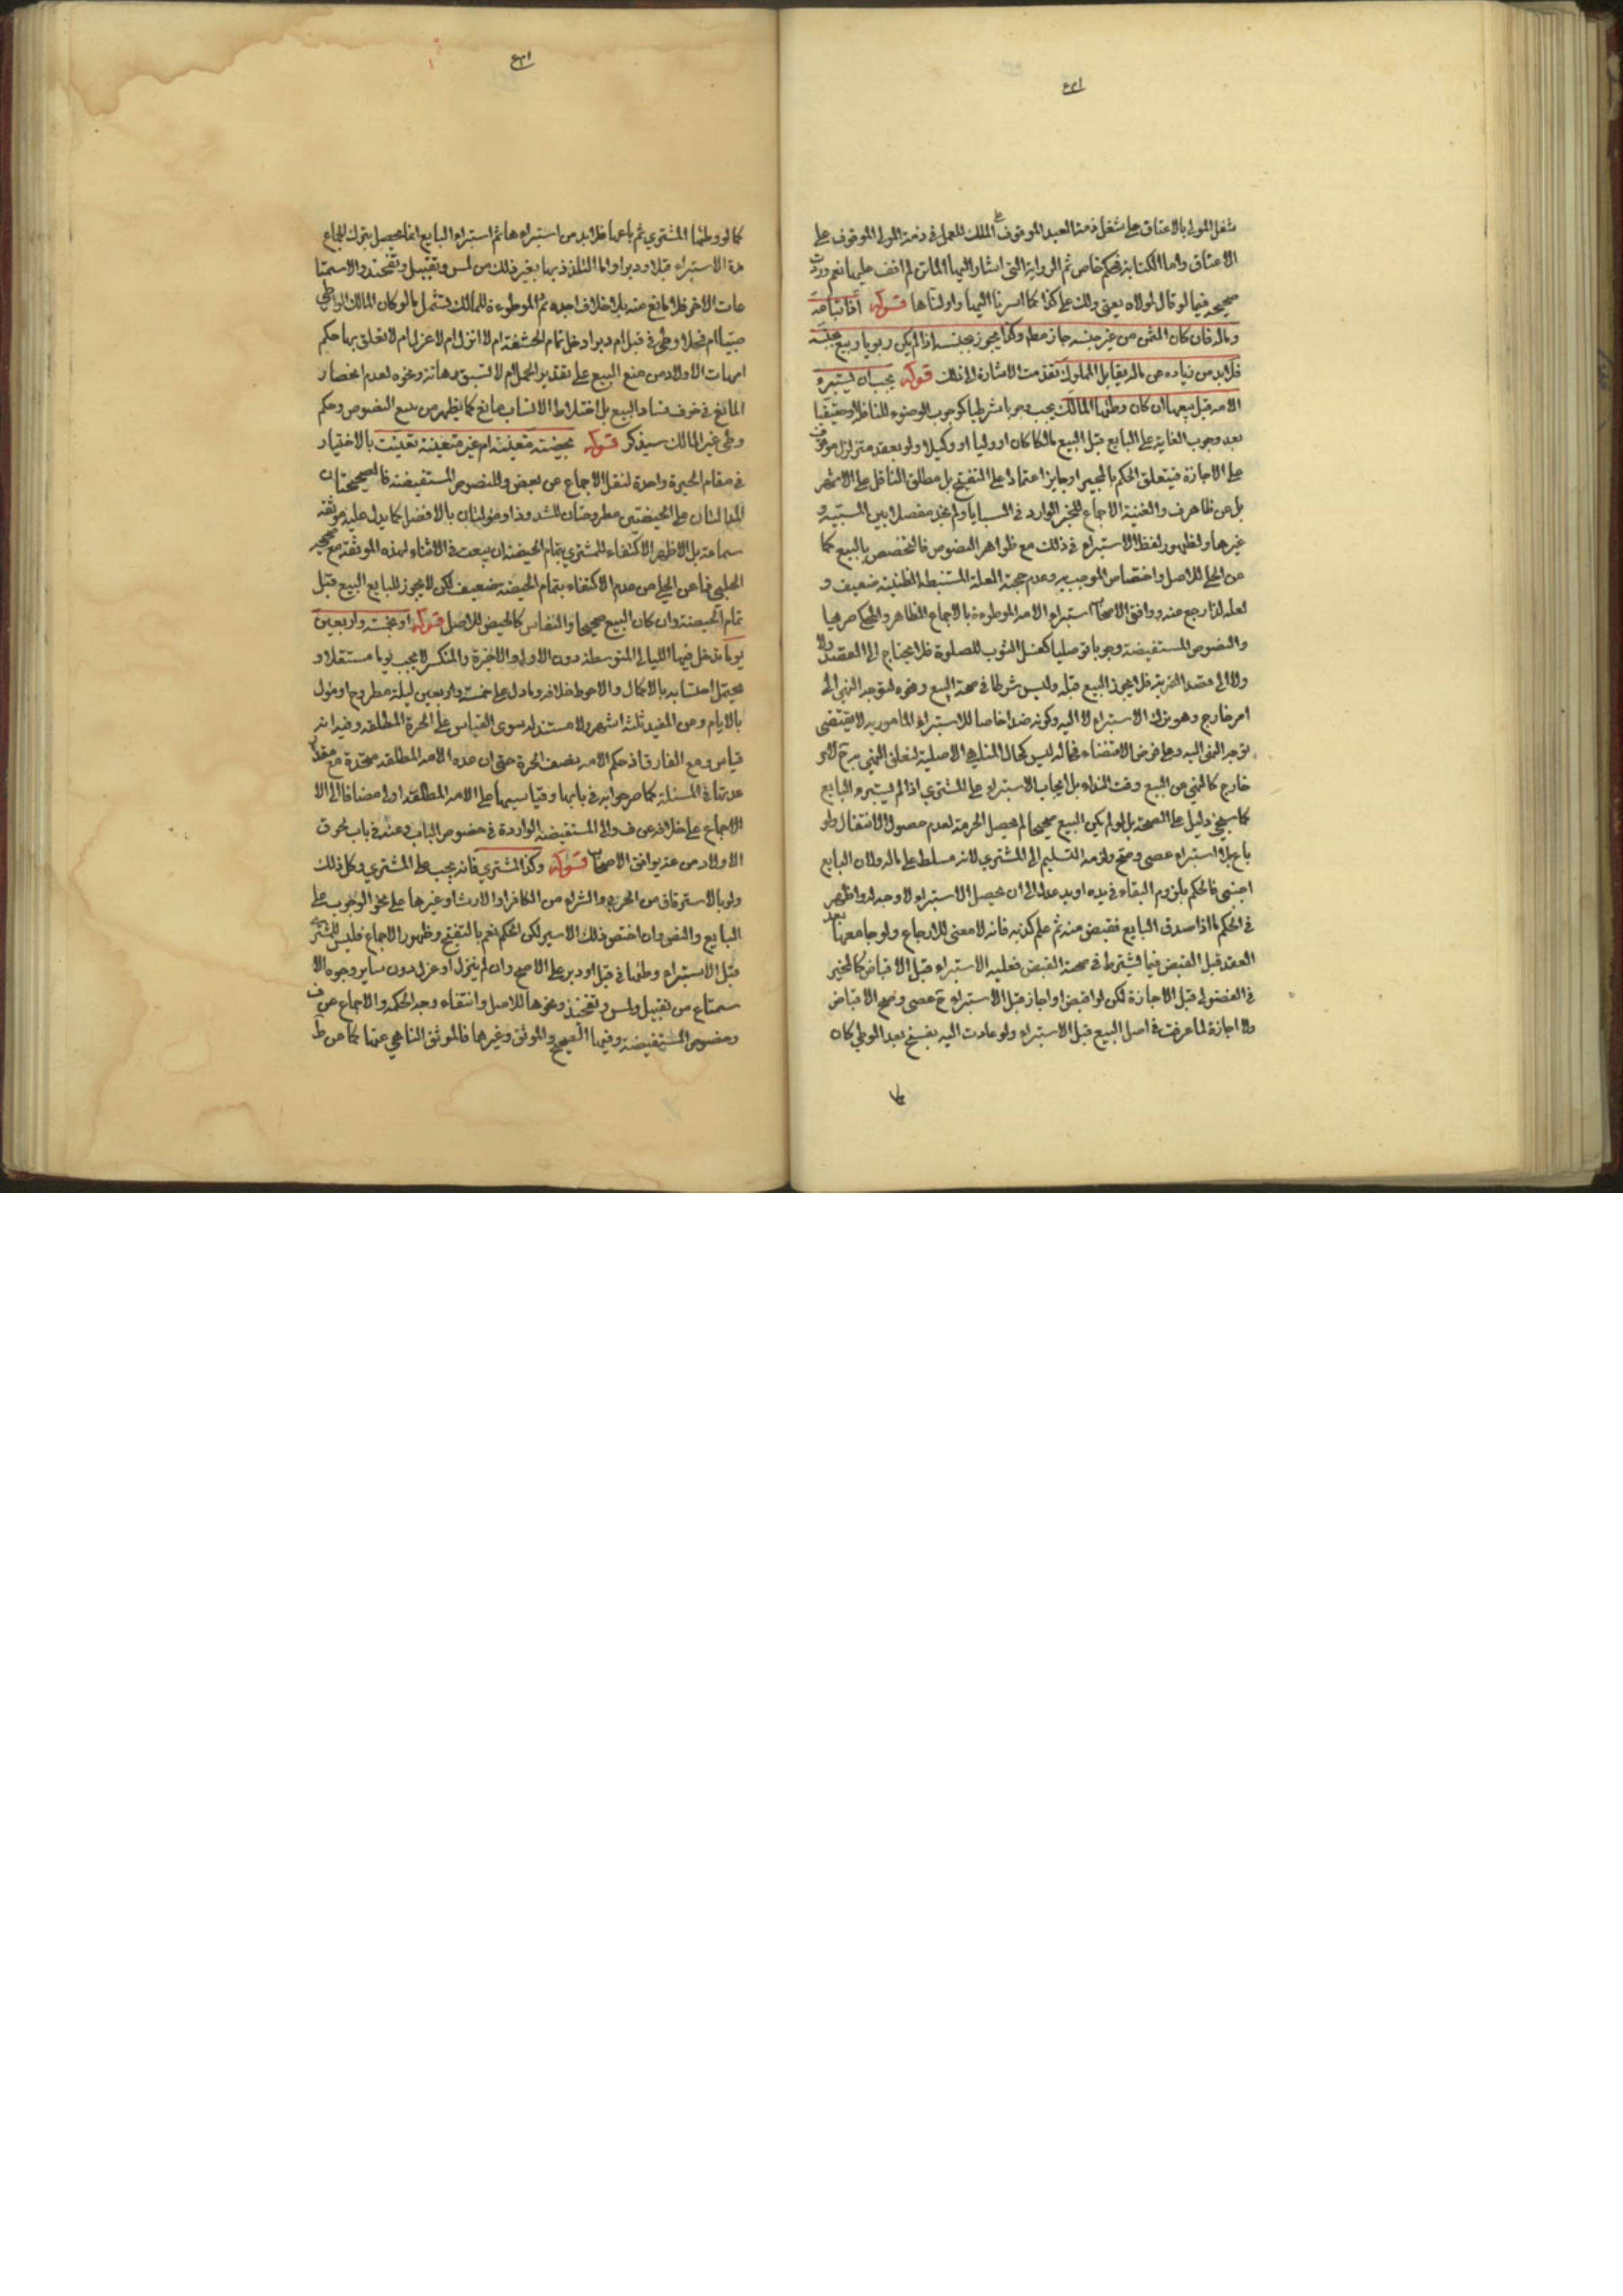 ٤٢١
شغل المولى بالاعتاق على شغل ذمة العبد الموقوف على الملك للعمل في ذمة المولى الموقوف على
الاعتاق واما الكتابة فحكم خاص ثم الرواية التي اشار اليها الماتن لم اقف عليها نعم وردت
صحيحه فيما لو قال لمولاه بعني ولك على كذا كما اشرنا اليها واولناها قوله اذا اتباعه
وماله فان كان الثمن من غير جنسه جاز مطلقا وكذا يجوز بجنسه اذا لم يكن ربويا وبيع بجنسه
فلا بد من زياده عن ماله يقابل المملوك تقدمت الاشارة الى ذلك قوله يجب ان يستبرء
الامه قبل بيعها ان كان وطئها المالك يجب وجوبا شرطيا كوجوب الوضوء للنافله او حقيقيا
بعد وجوب الغاية على البايع قبل البيع مالكا كان او وليا او وكيلا ولو بعقد متزلزل موقوف
على الاجازة فيتعلق الحكم بالمجيز او جايز اعتمادا على التنقيح بل مطلق الناقل على الاشهر
بل عن ظاهر ف والغنية الاجماع للخبر الوارد في السبايا ولم نجد مفصلا بين السبيه و
غيرها ولظهور لفظ الاستبراء في ذلك مع ظواهر النصوص فالتخصيص بالبيع كما
عن الحلي للاصل واختصاص الموجب به وعدم حجية العلة المستنبطة الظنية ضعيف و
لعله لذا رجع عنه ووافق الاصحاب استبراء الامه الموطوءة بالاجماع الظاهر والمحكي صريحا
والنصوص المستفيضة وجوبا توصليا كغسل الثوب للصلوة فلا يحتاج الى العقد ولا
ولا الى مقصد القربة فلا يجوز البيع قبله وليس شرطا في صحة البيع ونحوه لتوجه النهي الى
امر خارج وهو ترك الاستبراء لا اليه وكونه ضدا خاصا للاستبراء المامور به لا يقتضي
توجه النهي اليه وعلى فرض الاقتضاء فحاله ليس كحال المناهي الاصلية لتعلق النهي به ح لامر
خارج كالنهي عن البيع وقت النداء بل ايجاب الاستبراء على المشتري اذا لم يستبرء البايع
كما سيجئ دليل على الصحة بل لو لم يكن البيع صحيحا لم يحصل الحرمة لعدم حصول الانتقال ولو
باع بلا استبراء عصى وصح ولزمه التسليم الى المشتري لانه مسلط على ماله ولان البايع
اجنبي فالحكم بلزوم البقاء في يده او يد عدل الى ان يحصل الاستبراء لا وجه له واظهر
في الحكم ما اذا صدق البايع فقبض منه ثم علم كذبه فانه لا معنى للارجاع ولو جامعها بعد
العقد قبل القبض فيما يشترط في صحة القبض فعليه الاستبراء قبل الاقباض كالمجيز
في الفضولي قبل الاجازة لكن لو اقبض او اجاز قبل الاستبراء ح عصى وصح الاقباض
والاجازة لما عرفت في اصل البيع قبل الاستبراء ولو عادت اليه بفسخ بعد الوطي كان
٤٣١
كما لو وطئها المشتري ثم باعها فلا بد من استبراءها ثم استبراء البايع انما يحصل بترك الجماع
مدة الاستبراء قبلا ودبرا واما التلذذ بها بغير ذلك من لمس وتقبيل وتفخيذ والاستمتا
عات الاخر فلا مانع منه بلا خلاف اجده ثم الموطوءة للمالك تشمل ما لو كان المالك الواطي
صبيا ام فحلا وطئ في قبل ام دبر ادخل تمام الحشفة ام لا انزل ام لا عزل ام لا تعلق بها حكم
امهات الاولاد من منع البيع على تقدير الحمل ام لا لسبق رهانة ونحوه لعدم انحصار
المانع في خوف فساد البيع بل اختلاط الانساب مانع كما يظهر من تتبع النصوص وحكم
وطي غير المالك سيذكر قوله بحيضة متعينه ام غير متعينة تعينت بالاختيار
في مقام الحيرة واحدة لنقل الاجماع عن بعض وللنصوص المستفيضة فالصحيحتان
الدالتان على الحيضتين مطروحتان للشذوذ او مؤلتان بالافضل كما يدل عليه موثقه
سماعة بل الاظهر الاكتفاء للمشتري بتمام الحيضة ان بيعت في الاثناء لهذه الموثقه مع صحيحه
الحلبي فما عن الحلي من عدم الاكتفاء بتمام الحيضة ضعيف لكن لا يجوز للبايع البيع قبل
تمام الحيضة وان كان البيع صحيحا والنفاس كالحيض للاصل قوله او بخمسة واربعين
يوما تدخل فيها الليالي المتوسطة دون الاولى والاخيرة والمنكسر لا يحسب يوما مستقلا و
يحتمل احتسابه بالاكمال والاحوط خلافه وما دل على خمسة واربعين ليلة مطروح او مؤل
بالايام وعن المفيد ثلثة اشهر ولا مستند له سوى القياس على الحرة المطلقه وفيه انه
قياس ومع الفارق اذ حكم الامه نصف الحرة حتى ان عده الامه المطلقه متحدة مع مقدار
عدتها في المسئلة كما صرحوا به في بابها وقياسها على الامه المطلقه اولى مضافا الى الا
الاجماع على خلافه عن ف والى المستفيضه الواردة في خصوص الباب وعنه في باب لحوق
الاولاد من عنه يوافق الاصحاب قوله وكذا المشتري فانه يجب على المشتري وكل ذلك
ولو بالاسترقاق من الحربي والشراء من الكافر او الارث او غيرها على نحو الوجوب على
البايع والنص وان اختص ذلك الاسير لكن الحكم نعم بالتنقيح وظهور الاجماع فليس للمشتري
قبل الاستبراء وطئها في قبل او دبر على الاصح وان لم ينزل او عزل دون ساير وجوه الا
ستمتاع من تقبيل ولمس وتفخيذ ونحوها للاصل وانتفاء وجه الحكمه والاجماع عن ف
وخصوص المستفيضة وفيها الصحيح والموثق وغيرها فالموثق الناهي عنها كما عن ط